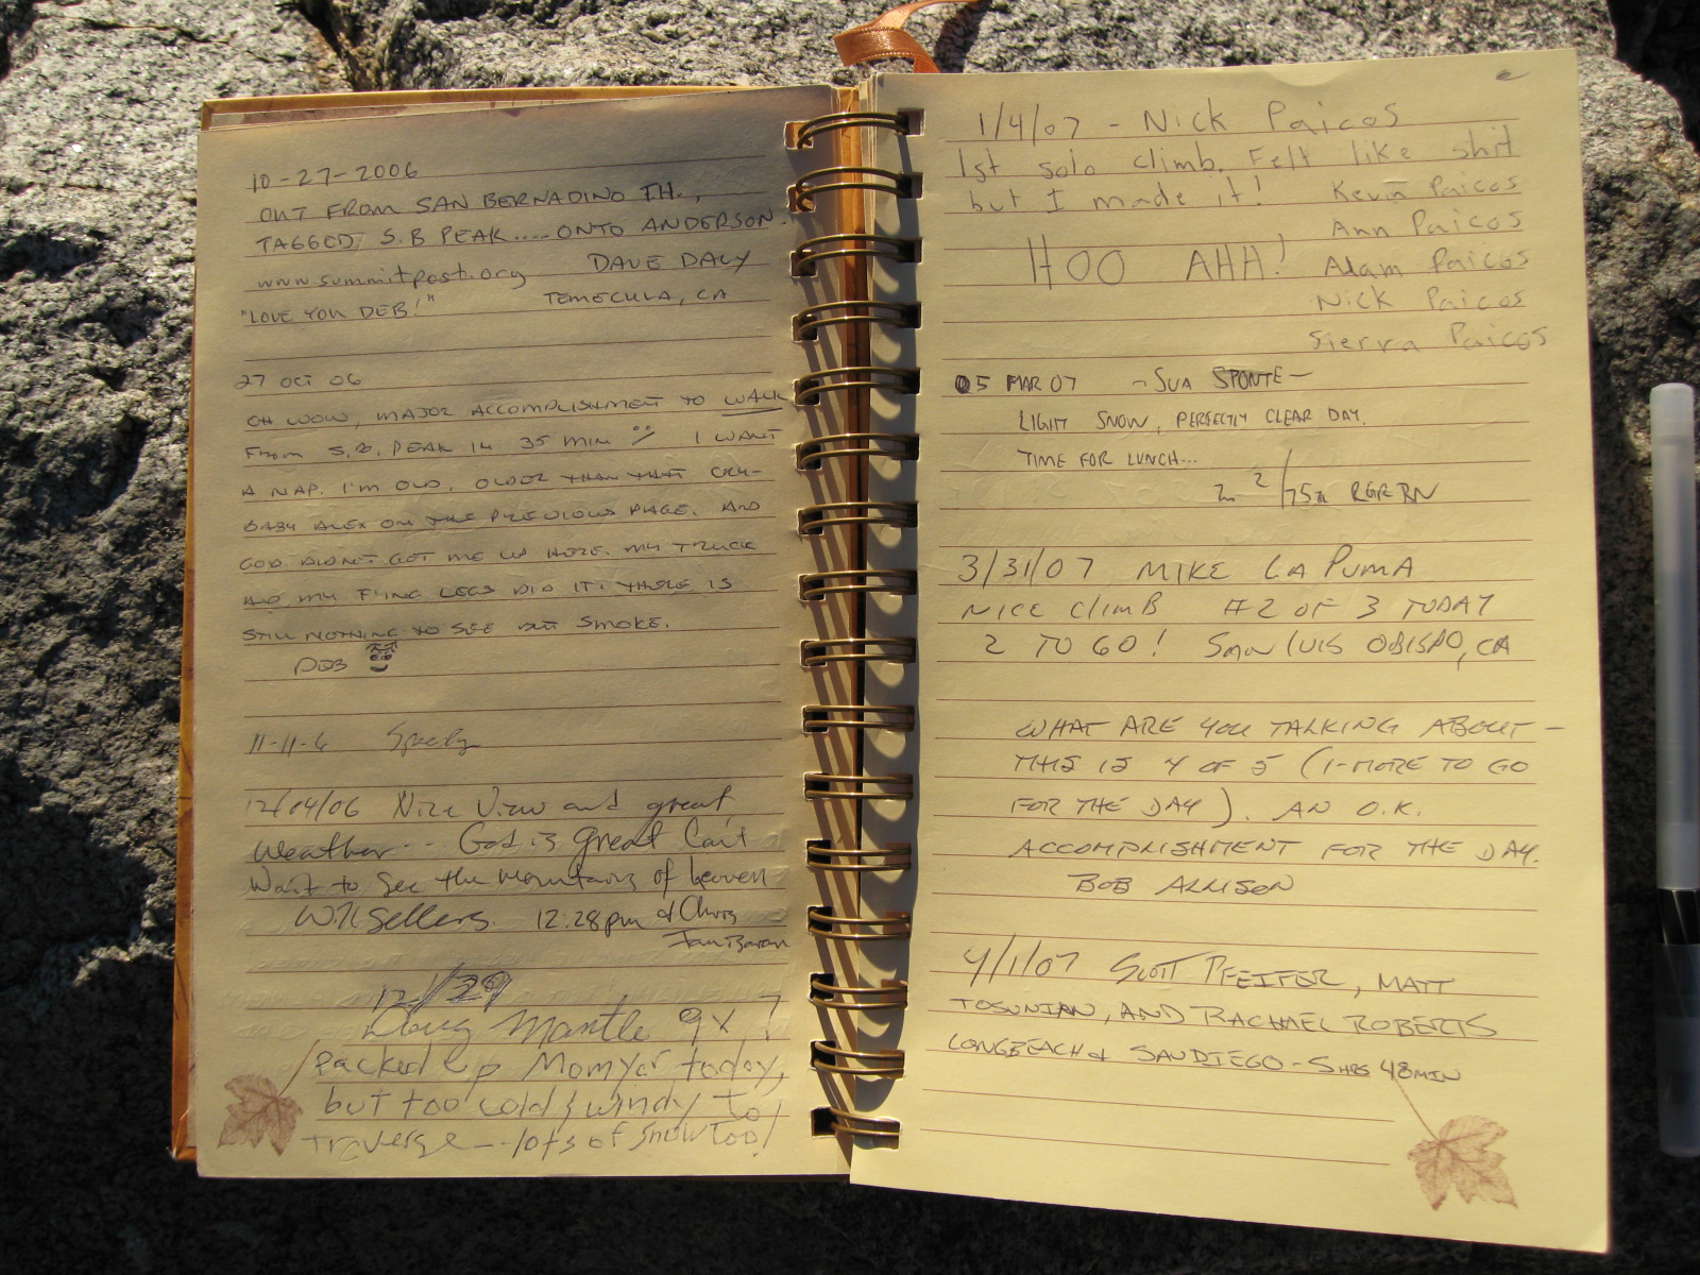 10-27-2006
OUT FROM SAN BERNADINO T.H.,
TAGGED S.B PEAK.....ONTO ANDERSON.
www.summitpost.org DAVE DALY
"LOVE YOU DEB!" TEMECULA, CA
27 OCT 06
OH WOW, MAJOR ACCOMPLISHMENT TO WALK
FROM S.B. PEAK IN 35 MIN I WANT
A NAP. I'M OLD. OLDER THAN THAT CRY-
BABY ALEX ON THE PREVIOUS PAGE. AND
GOD DIDN'T GET ME UP HERE. MY TRUCK
AND MY F'ING LEGS DID IT. THERE IS
STILL NOTHING TO SEE BUT SMOKE.
DEB
11-11-6
12/04/06 Nice View and great
Weather.. God is great Can't
Wait to See the mountains of heaven
WKSellers. 12:28pm of Chris
12/29
Doug Mantle 9X?
Packed up Momyer today,
but too cold & windy to
traverse -- lots of snow too!
1/4/07 - Nick Paicos
1st solo climb. Felt like shit
but I made it! Kevin Paicos
Ann Paicos
HOO AHH! Adam Paicos
Nick Paicos
Sierra Paicos
05 MAR 07 -SUA SPONTE-
LIGHT SNOW, PERFECTLY CLEAR DAY.
TIME FOR LUNCH...
2/75th RGR BN
3/31/07 MIKE LA PUMA
NICE CLIMB #2 OF 3 TODAY
2 TO GO! SAN LUIS OBISPO, CA
WHAT ARE YOU TALKING ABOUT -
THIS IS 4 OF 5 (1-MORE TO GO
FOR THE DAY). AN O.K.
ACCOMPLISHMENT FOR THE DAY.
BOB ALLISON
4/1/07 SCOTT PFEIFER, MATT
TOSUNIAN, AND RACHAEL ROBERTS
LONGBEACH & SANDIEGO - 5 HRS 48 MIN